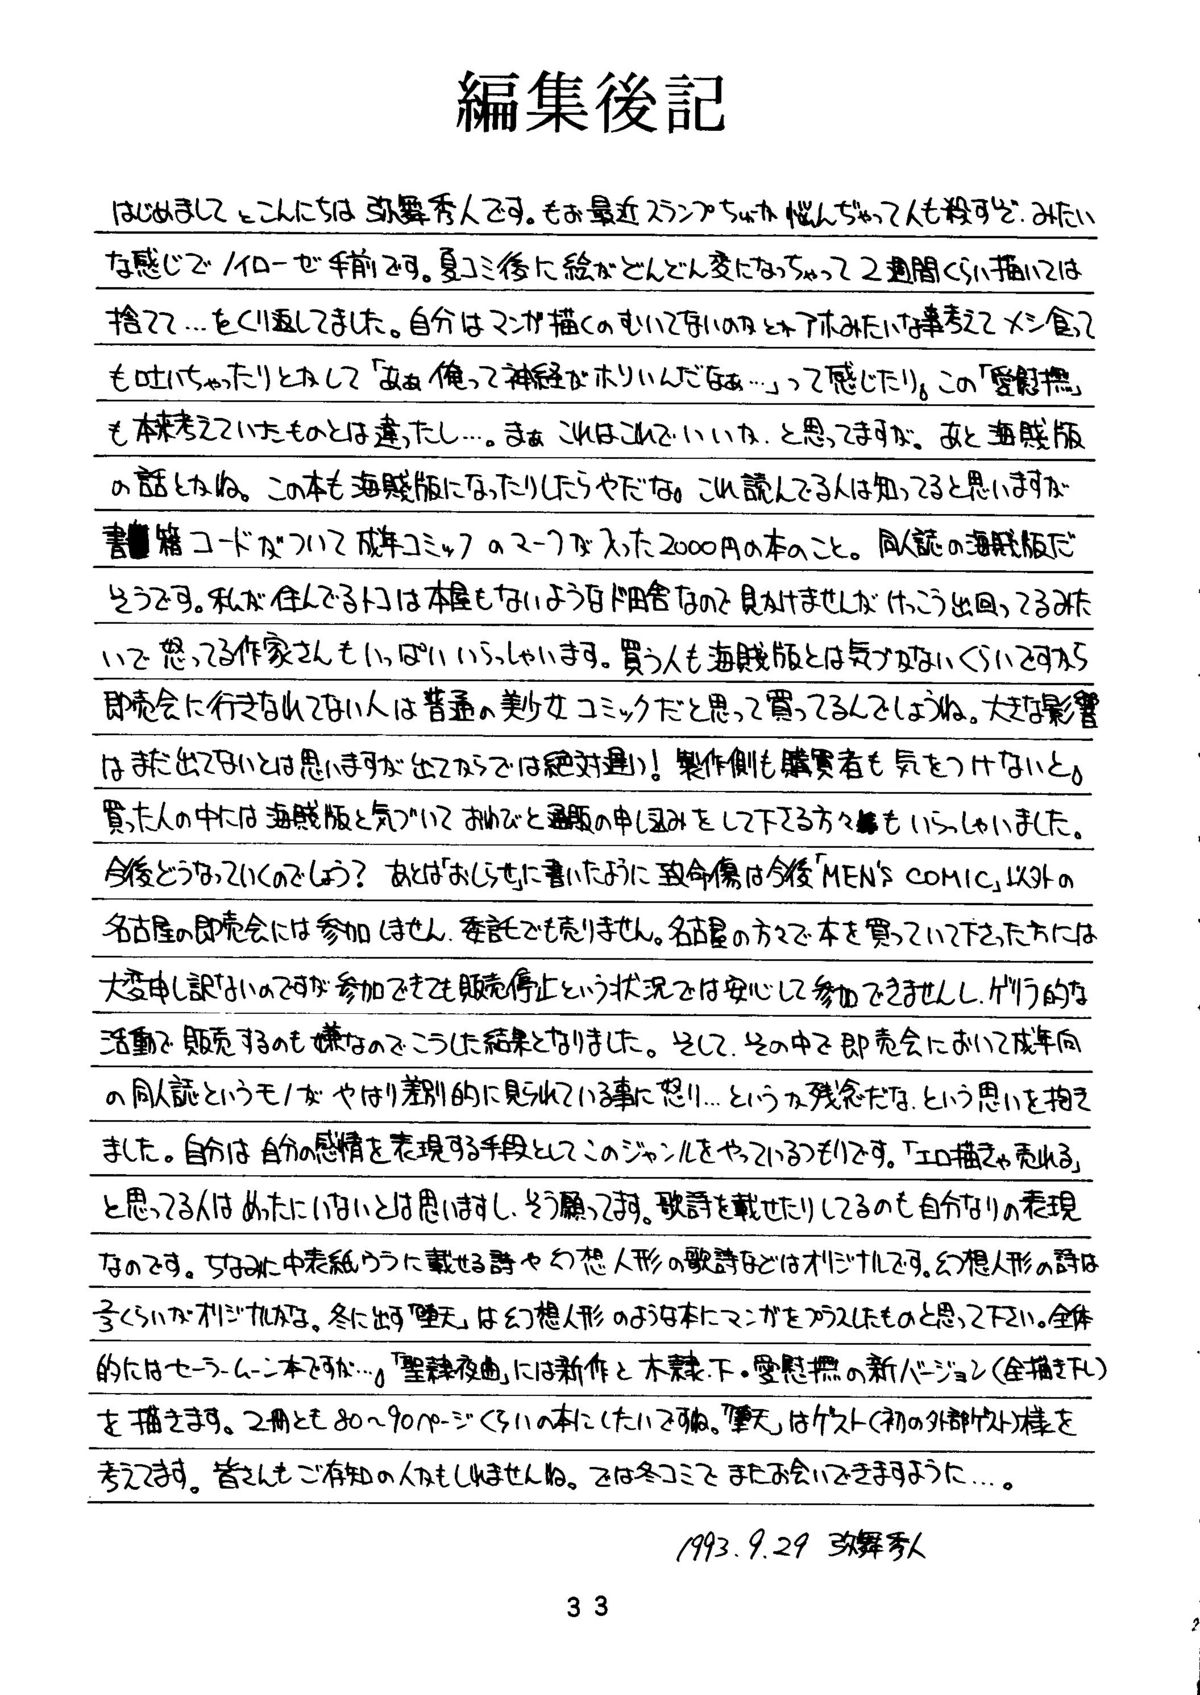 編集後記
はじめまして とこんにちは 弥舞秀人です。もお最近スランプちゅーか 悩んぢゃって人も殺すぞ、みたい
な感じでノイローゼ手前です。夏コミ後に絵がどんどん変になっちゃって2週間くらい描いては
捨てて…をくり返してました。自分はマンガ描くのむいてないのかとかアホみたいな事考えてメシ食って
も吐いちゃったりとかして「あぁ俺って神経がホソいんだなぁ…」って感じたり。この「愛慰撫」
も本来考えていたものとは違ったし…。まぁ これはこれでいいか、と思ってますが。あと海賊版
の話とかね。この本も海賊版になったりしたらやだな。これ読んでる人は知ってると思いますが
書籍コードがついて成年コミックのマークが入った2000円の本のこと。同人誌の海賊版だ
そうです。私が住んでるトコは本屋もないようなド田舎なので見かけませんがけっこう出回ってるみた
いで怒ってる作家さんもいっぱいいらっしゃいます。買う人も海賊版とは気づかないくらいですから
即売会に行きなれてない人は普通の美少女コミックだと思って買ってるんでしょうね。大きな影響
はまだ出てないとは思いますが出てからでは絶対遅い!製作側も購買者も気をつけないと。
買った人の中には海賊版と気づいておわびと通販の申し込みをして下さる方々もいらっしゃいました。
今後どうなっていくのでしょう?あとは「おしらせ」に書いたように致命傷は今後「MEN'S COMIC」以外の
名古屋の即売会には参加しません、委託でも売りません。名古屋の方々で本を買っていて下さった方には
大変申し訳ないのですが参加できても販売停止という状況では安心して参加できませんし、ゲリラ的な
活動で販売するのも嫌なのでこうした結果となりました。そして、その中で即売会において成年向
の同人誌というモノがやはり差別的に見られている事に怒り…というか残念だな、という思いを抱き
ました。自分は自分の感情を表現する手段としてこのジャンルをやっているつもりです。「エロ描きゃ売れる」
と思ってる人はめったにいないとは思いますし、そう願ってます。歌詩を載せたりしてるのも自分なりの表現
なのです。ちなみに中表紙ウラに載せる詩や幻想人形の歌詩などはオリジナルです。幻想人形の詩は
2/3くらいがオリジナルかな。冬に出す「堕天」は幻想人形のような本にマンガをプラスしたものと思って下さい。全体
的にはセーラームーン本ですが…。「聖隷夜曲」には新作と木隷、下・愛慰撫の新バージョン(全描き下し)
を描きます。2冊とも80〜90ページくらいの本にしたいですね。「堕天」はゲスト(初の外部ゲスト)様を
考えてます。皆さんもご存知の人かもしれませんね。では冬コミでまたお会いできますように…。
1993.9.29 弥舞秀人
33